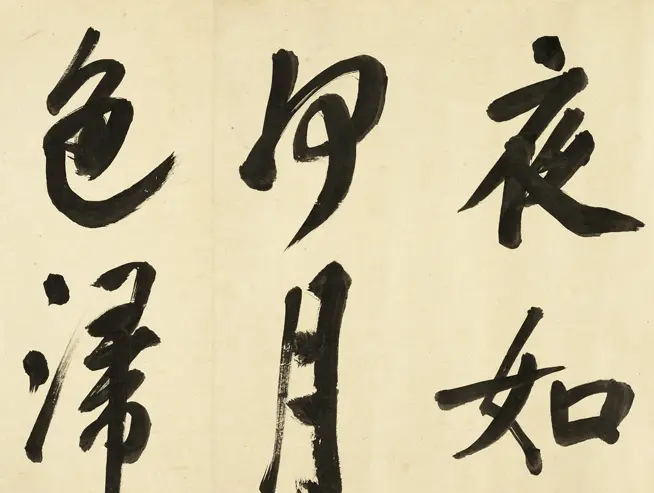 夜如
何月
色歸